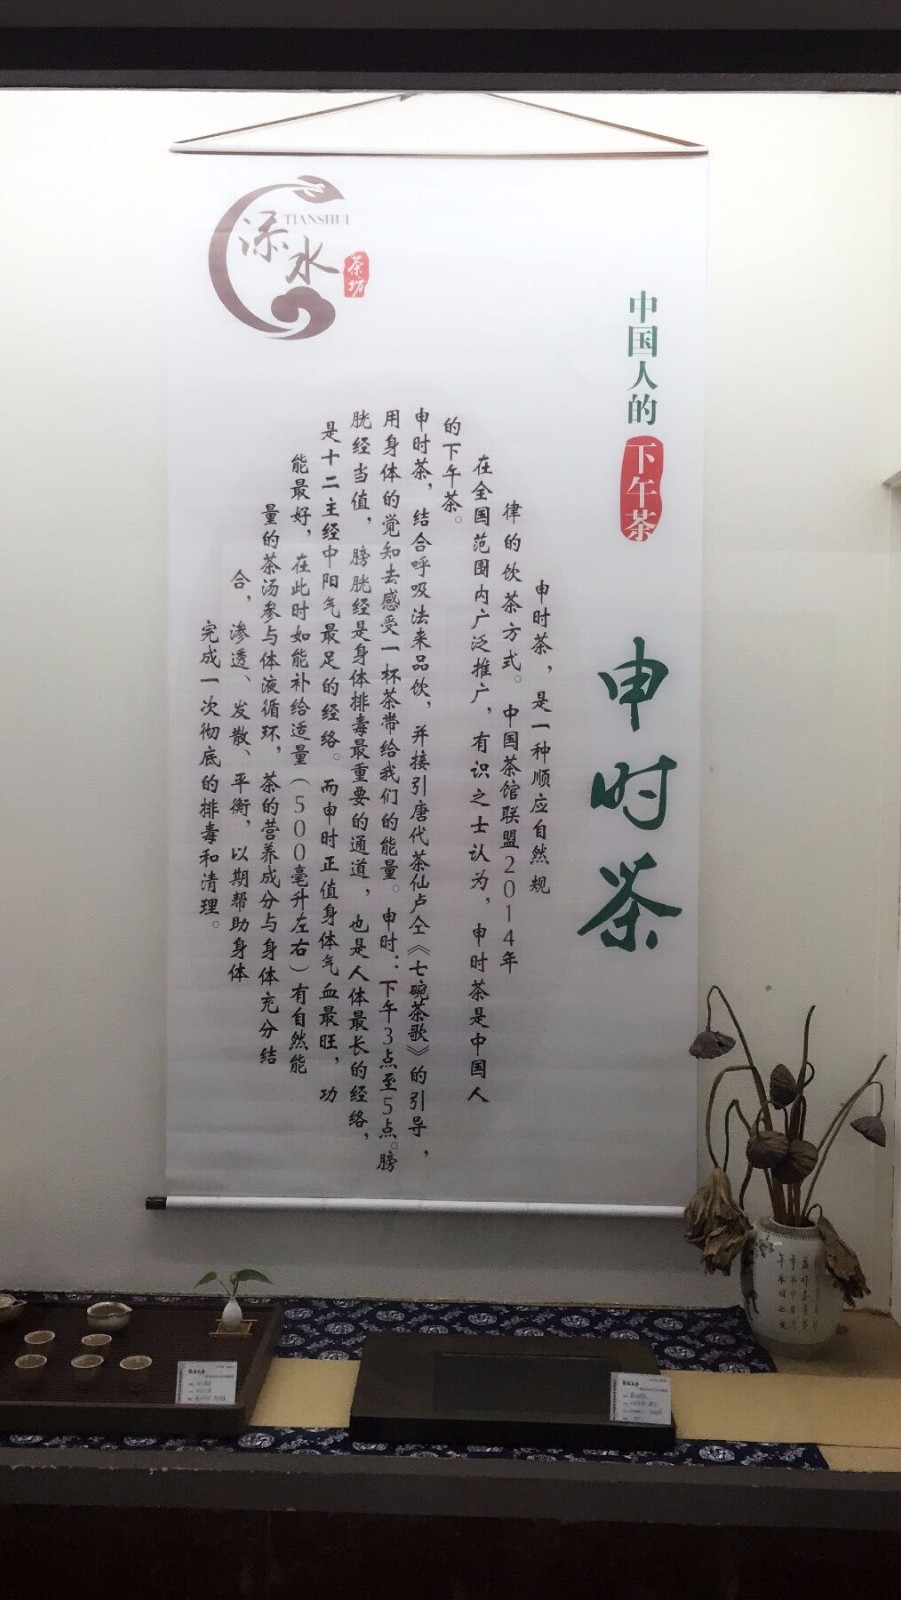 添水
TIANSHUI
茶坊
中国人的下午茶
申时茶
申时茶，是一种顺应自然规
律的饮茶方式。中国茶馆联盟2014年
在全国范围内广泛推广，有识之士认为，申时茶是中国人
的下午茶。
申时茶，结合呼吸法来品饮，并接引唐代茶仙卢仝《七碗茶歌》的引导，
用身体的觉知去感受一杯茶带给我们的能量。申时：下午3点至5点。膀
胱经当值，膀胱经是身体排毒最重要的通道，也是人体最长的经络，
是十二主经中阳气最足的经络。而申时正值身体气血最旺，功
能最好，在此时如能补给适量（500毫升左右）有自然能
量的茶汤参与体液循环，茶的营养成分与身体充分结
合，渗透、发散、平衡，以期帮助身体
完成一次彻底的排毒和清理。